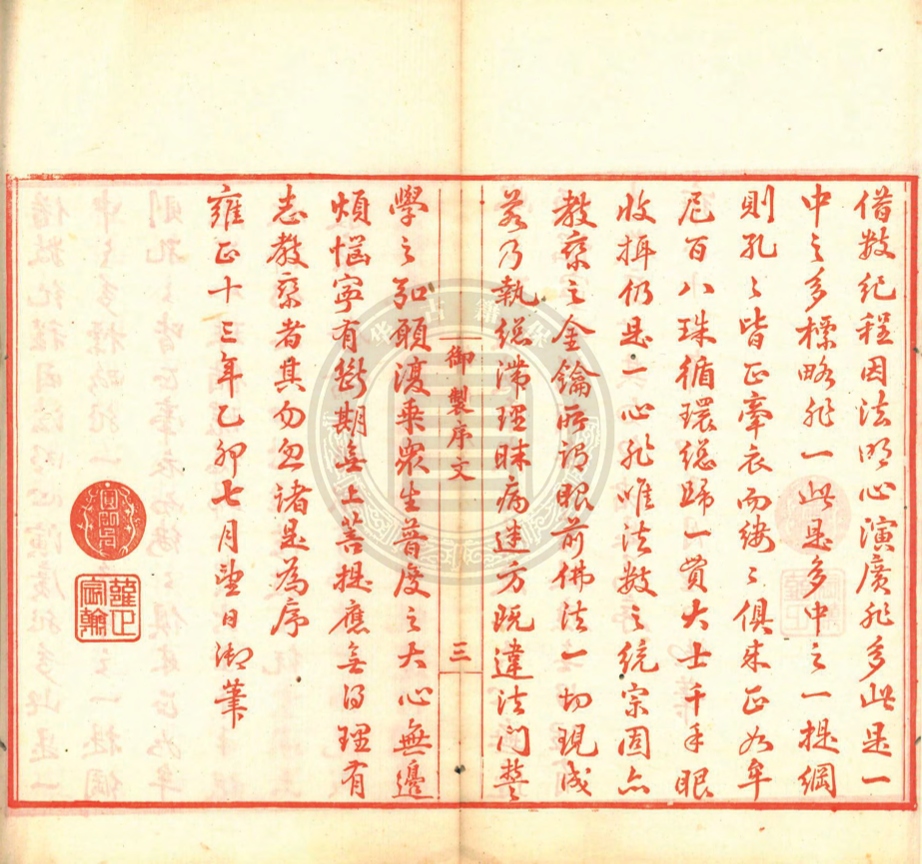 借數紀程因法明心演廣非多此是一
中之多標略非一此是多中之一提綱
則孔々皆正牽衣而縷々俱來正如牟
尼百八珠循環總歸一貫大士千手眼
收攝仍是一心非唯法數之統宗固亦
教乘之金鑰所謂眼前佛法一切現成
若乃執總滯理昧病迷方既違法門誓
御製序文
三
學之弘願復乖眾生普度之大心無邊
煩惱寧有斷期無上菩提應無得理有
志教乘者其勿忽諸是為序
雍正十三年乙卯七月望日御筆
雍正宸翰